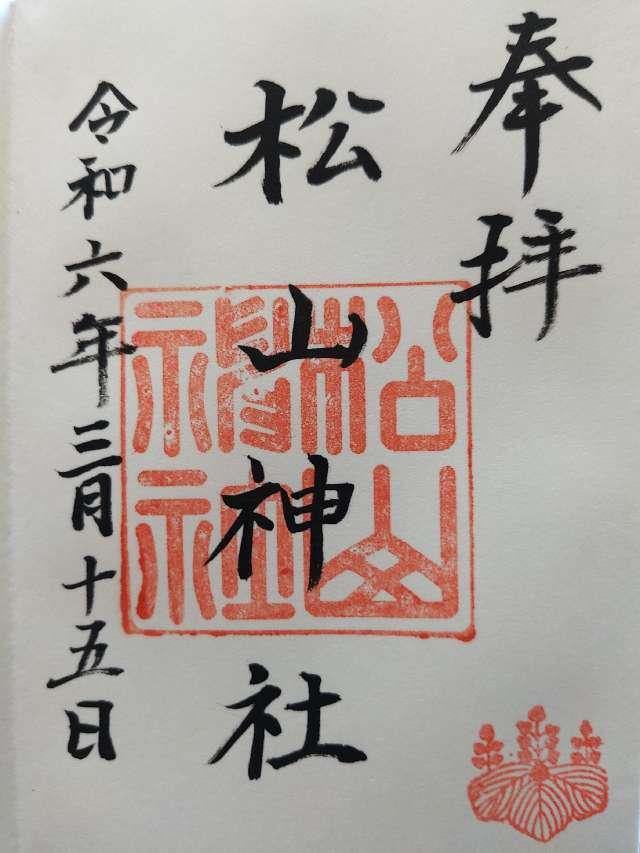 奉拝
松山神社
令和六年三月十五日
松山神社